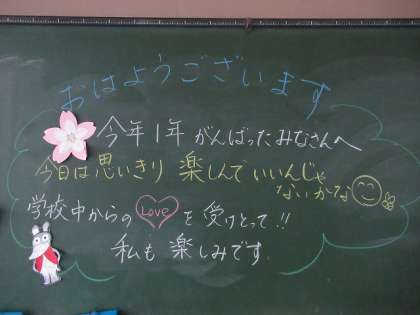 おはようございます
今年1年 がんばったみなさんへ
今日は思いきり 楽しんでいいんじゃ
ないかな
学校中からの Love を 受けとって!!
私も 楽しみです.